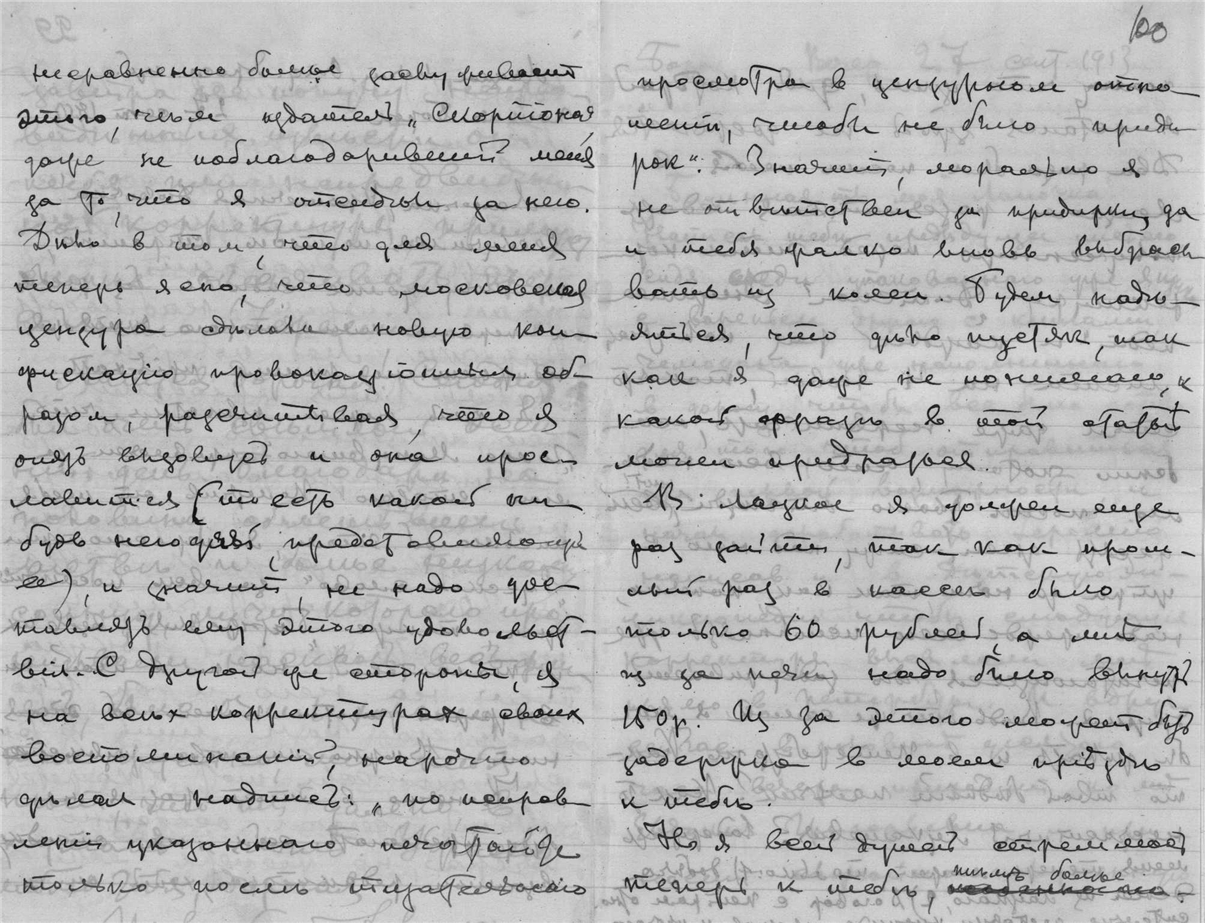 несравненно больше заслуживает
этого, чем издатель „Скорпiона",
даже не поблагодарившiй меня
за то, что я отсидел за него.
Дѣло в том, что для меня
теперь ясно, что московская
цензура сдѣлала новую кон-
фискацiю провокацiонным об-
разом, разсчитывая, что я
опять вызовусь и она прос-
лавится (то есть какой ни
будь негодяй, представляющiй
ее), и значит, не надо дос-
тавлять ему этого удовольст-
вiя. С другой же стороны, я
на всѣх корректурах своих
воспоминанiй, нарочно
дѣлал надпись: „по исправ
ленiи указаннаго печатайте
только послѣ тщательнаго
100
просмотра в цензурном отно-
шенiи, чтобы не было приди
рок". Значит, морально я
не отвѣтствен за придирки, да
и тебя жалко вновь выбрасы
вать из колеи. Будем надѣ-
яться, что дѣло пустяк, так
как я даже не понимаю, к
какой фразѣ в той статьѣ
можно придраться.
В я должен еще
раз зайти, так как прош-
лый раз в кассѣ было
только 60 рублей, а мнѣ
из за надо было вынуть
150 р. Из за этого может быть
задержка в моем прiѣздѣ
к тебѣ.
Но я всей душой стремлюсь
теперь к тебѣ, больше